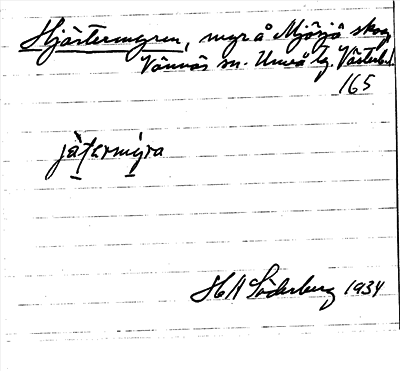 Hjärtermyren, myr å Mjösjö skog
Vännäs sn. Umeå tg. Västerb. l
165
jätarmýra
H Söderberg 1934